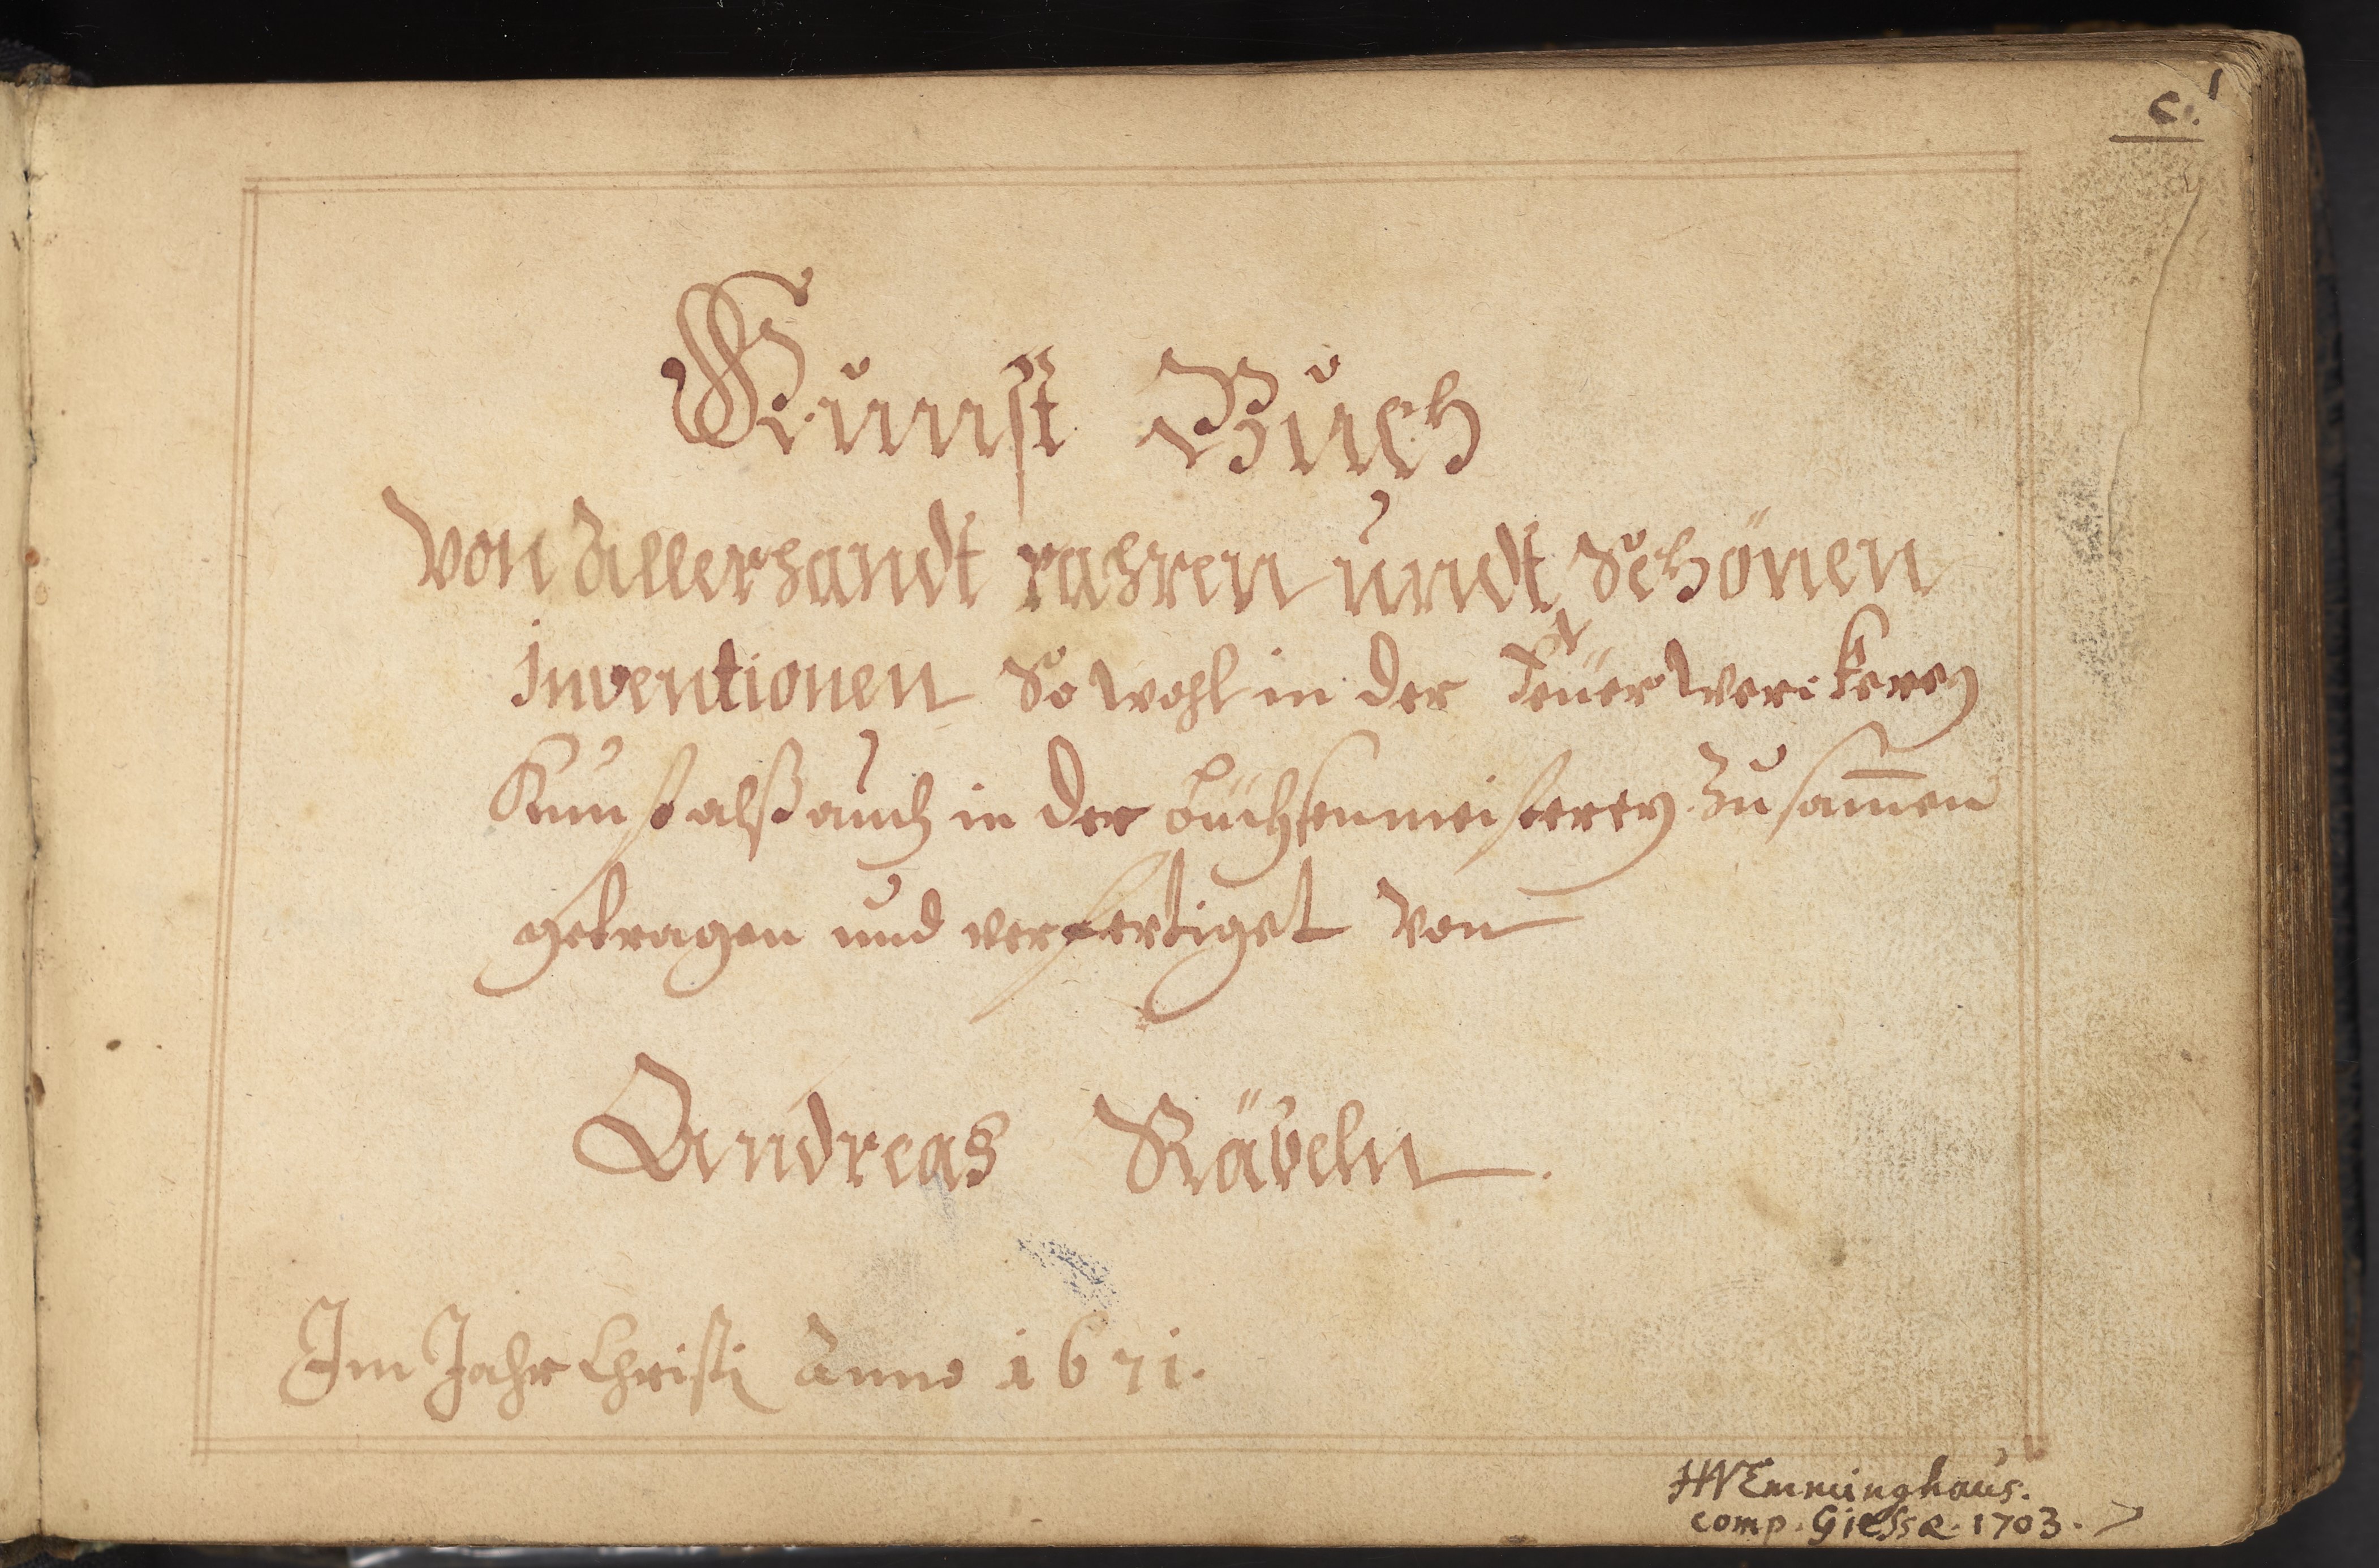 C. 1
Kunst Buch
Von Allerhandt rahren undt Schönen
Inventionen So wohl in der Feüer Werckerey
Kunst alß auch in der büchsenmeisterey Zusam̄en
getragen und verfertiget Von
Andreas Räbeln.
Im Jahr Christi Anno 1671.
HNEmminghaus.
comp. Giessæ. 1703.